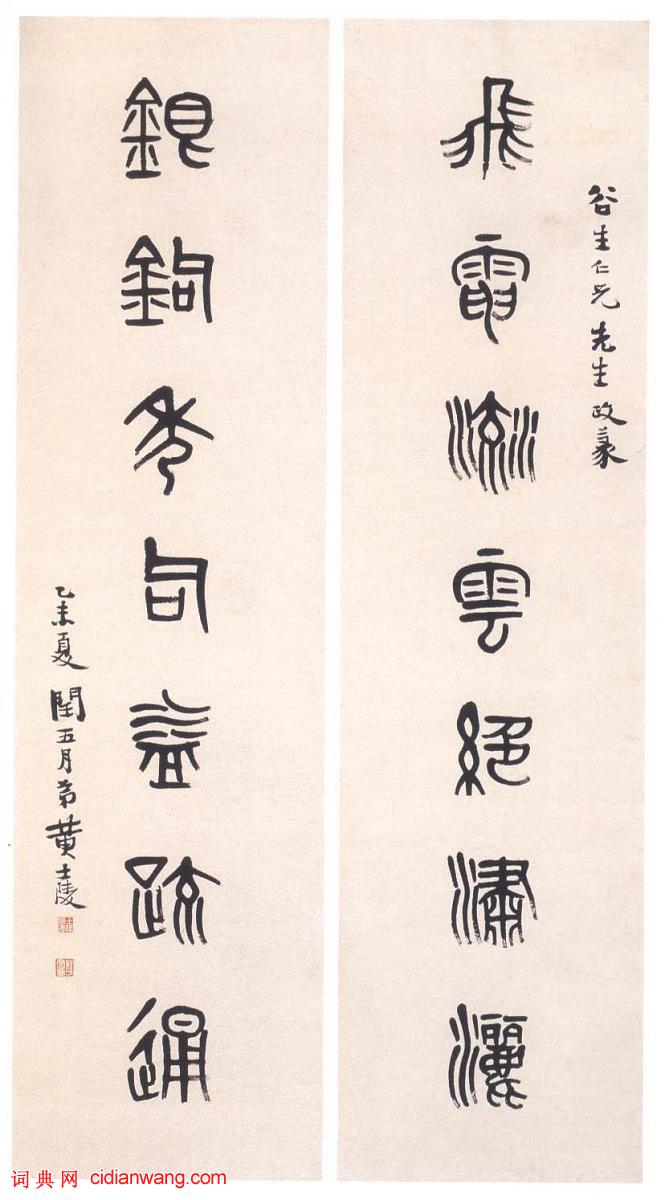 谷生仁兄先生政篆
飛電流雲絕潚灑
銀鉤秀句益疏通
乙未夏閏五月弟黃士陵
词典网 cidianwang.com